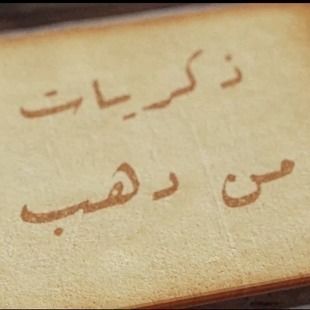 ذكريات
من دهب